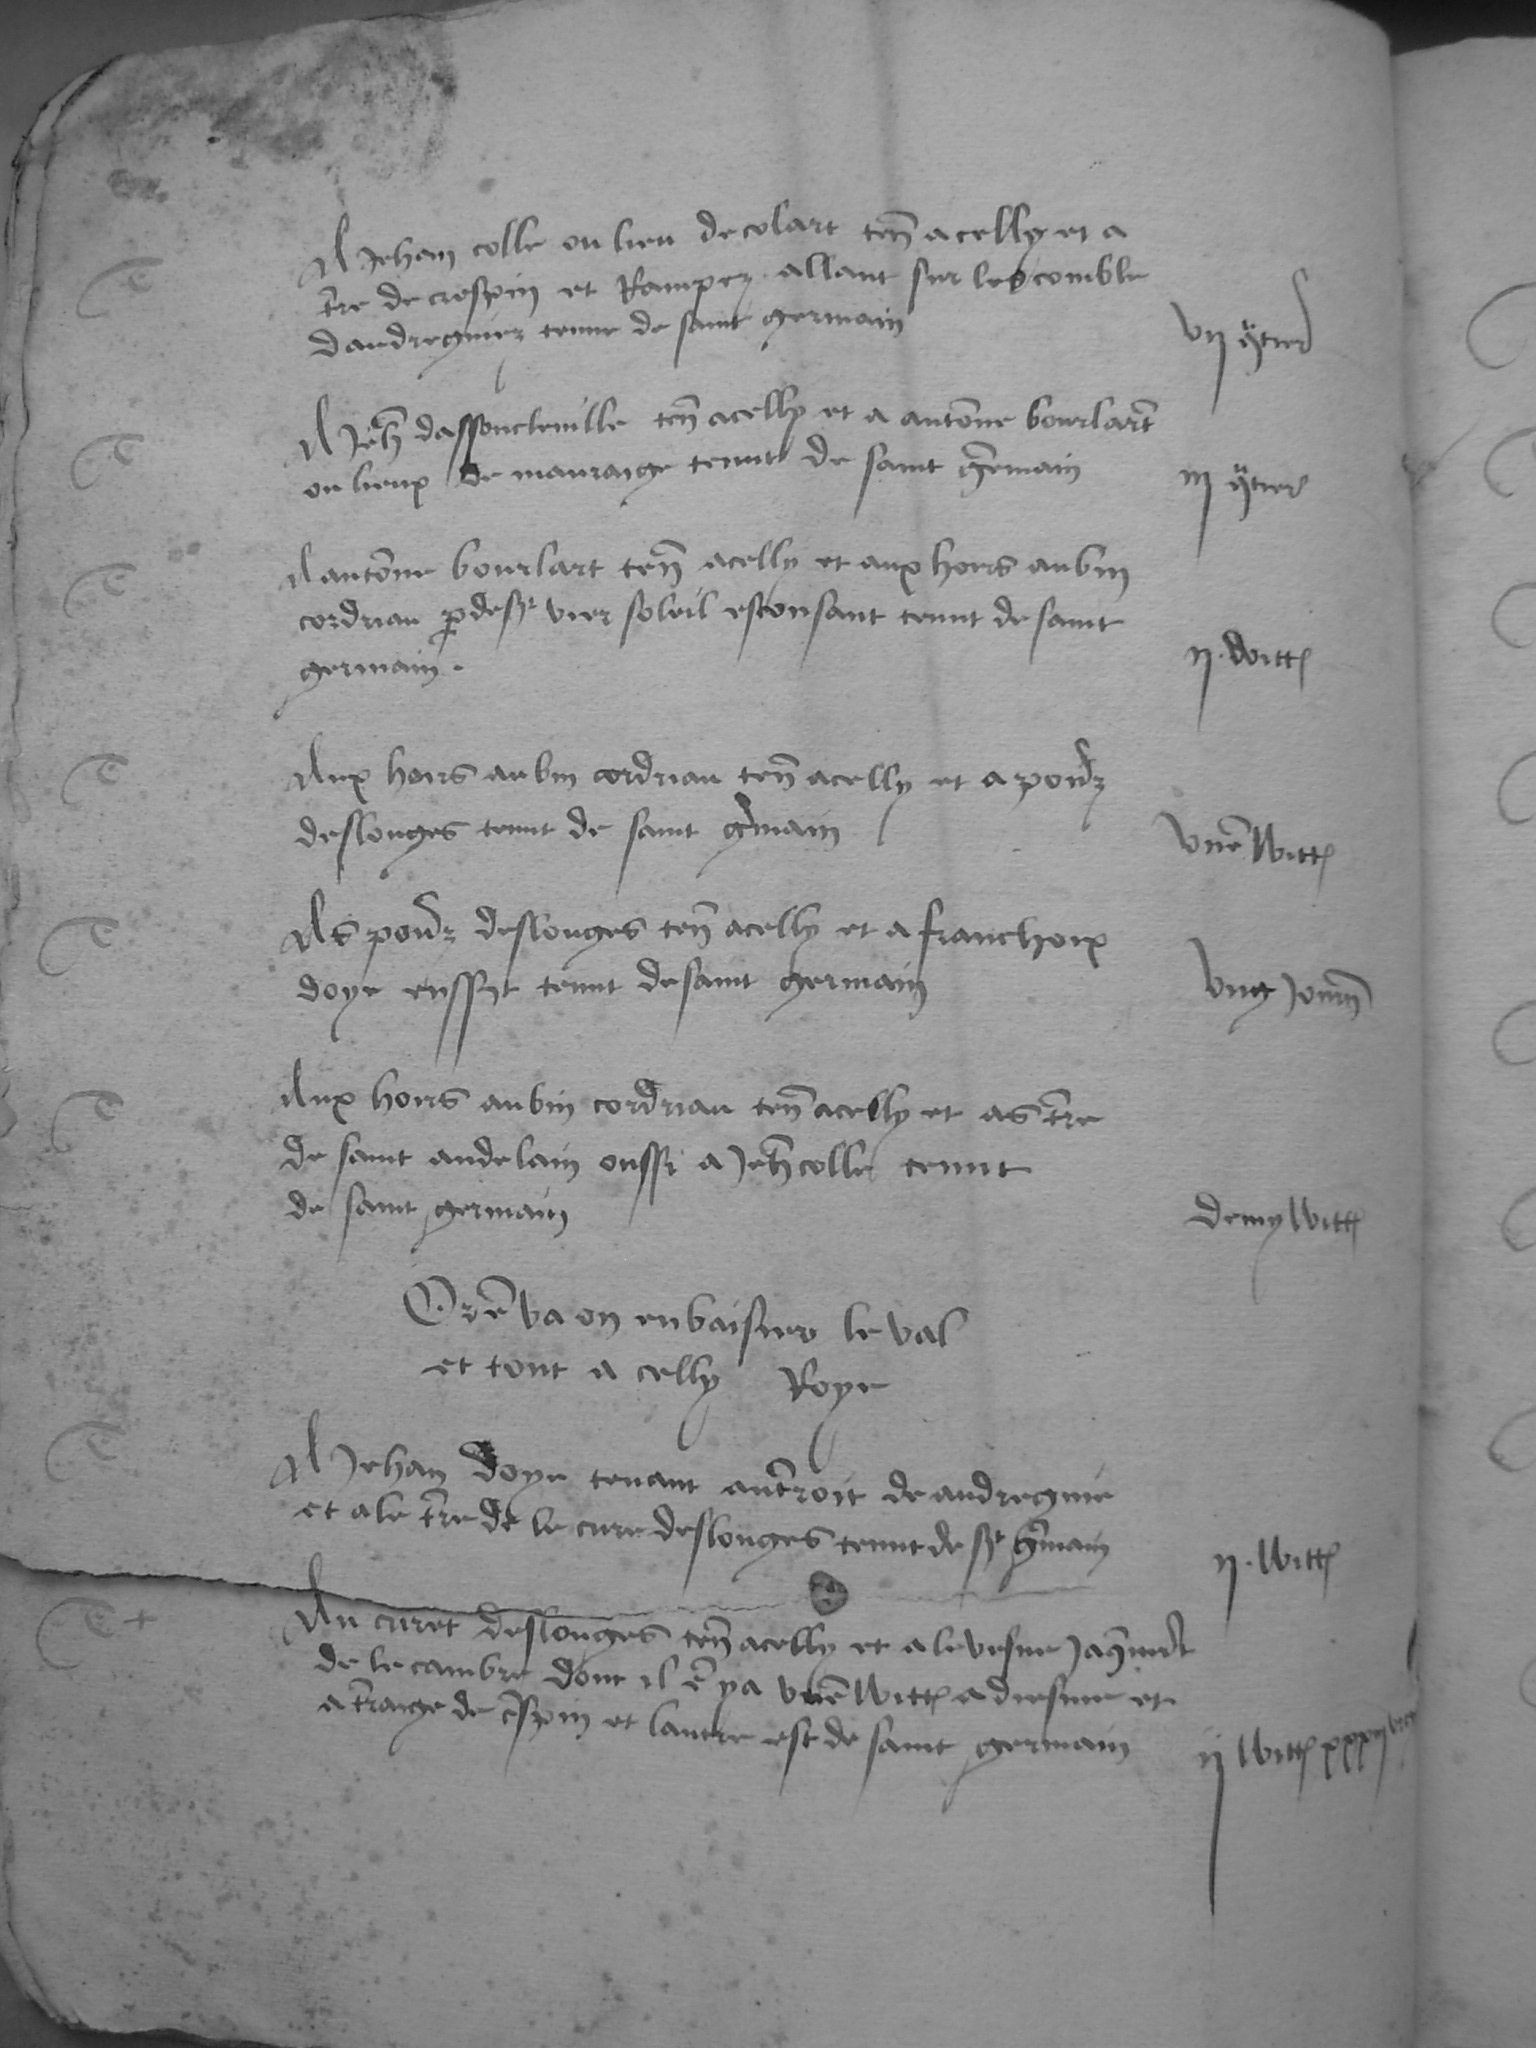 A Jehan colle ou lieu de colart ten̄ a celly et a
tr̄e de crespin et Rampez allant sur les comble
dandregniez tenue de saint germain
vij q̄tier
A Jeh̄ dassoncleville ten̄ a celly et a anto͞ne bourlart
ou lieux de mauraige tenut de saint gēmain
iij q̄tier
A anto͞ne bourlart ten̄ a celly et aux hoirs aubin
cordriau p̱desß vier soleil esconsant tenut de saint
germain .
ij . witt
Aux hoirs aubin cordriau ten̄ a celly et a
deslonges tenut de saint ḡmain
vnē witt
As deslonges ten̄ a celly et a franchoix
doye enssÿt tenut de saint germain
vng Journ̄
Aux hoirs aubin cordriau ten̄ a celly et as tr̄e
de saint andelain oussi a Jeh̄ colle tenut
de saint germain
demy witt
Or ē va on en baisier le val
et tout a celly Roye
A Jehan doye tenant aut̄roit de andregnie
et a le tr̄e de le cure deslonges tenut de sᵗ ḡmain
ij . witt
Au curet deslonges ten̄ a celly et a le vesue
de le cambre dont il ē y a vnē witt a diesme et
a t̄raige de c̄spin et lautre est de saint germain
ij witt xxxij